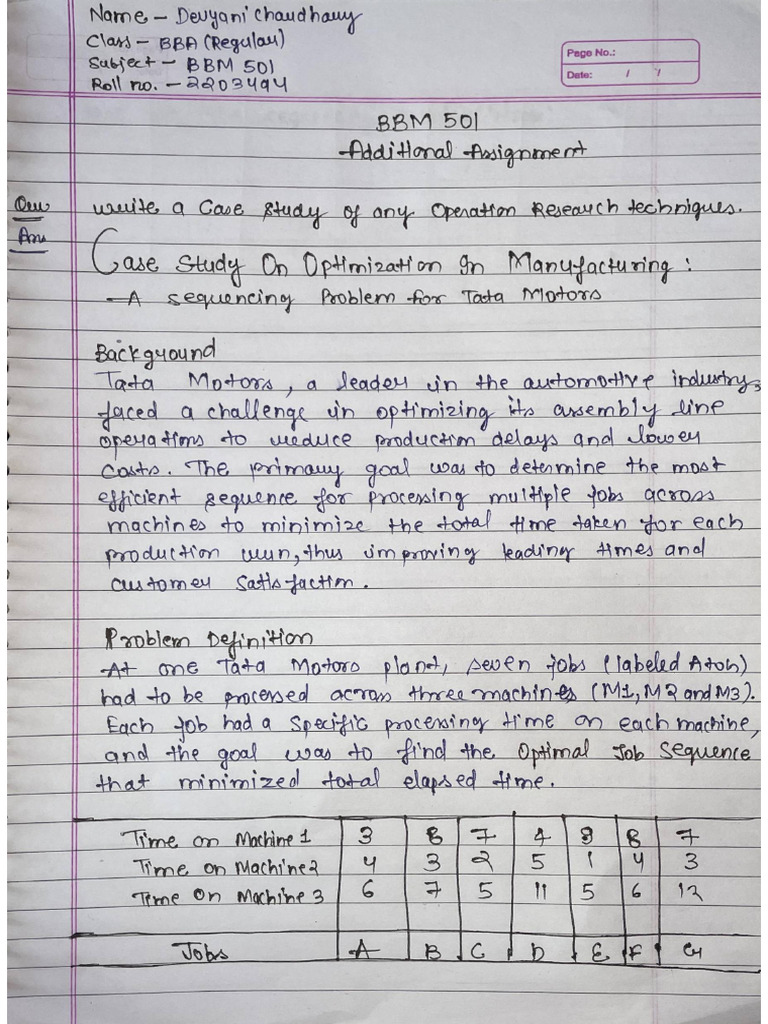 Name - Devyani Chaudhary
Class - BBA (Regular)
Subject - BBM 501
Roll no. - 2203494
Page No.:
Date: / /
BBM 501
Additional Assignment
Que Write a Case Study of any Operation Research techniques.
Ans Case Study On Optimization In Manufacturing :
- A Sequencing Problem for Tata Motors
Background
Tata Motors, a leader in the automotive industry,
faced a challenge in optimizing its assembly line
operations to reduce production delays and lower
costs. The primary goal was to determine the most
efficient sequence for processing multiple jobs across
machines to minimize the total time taken for each
production run, thus improving leading times and
customer satisfaction.
Problem Definition
At one Tata Motors plant, seven jobs (labeled A to G)
had to be processed across three machines (M1, M2 and M3).
Each job had a specific processing time on each machine,
and the goal was to find the Optimal Job Sequence
that minimized total elapsed time.
Time on Machine 1 3 8 7 4 9 8 7
Time on Machine 2 4 3 2 5 1 4 3
Time on Machine 3 6 7 5 11 5 6 12
Jobs A B C D E F G